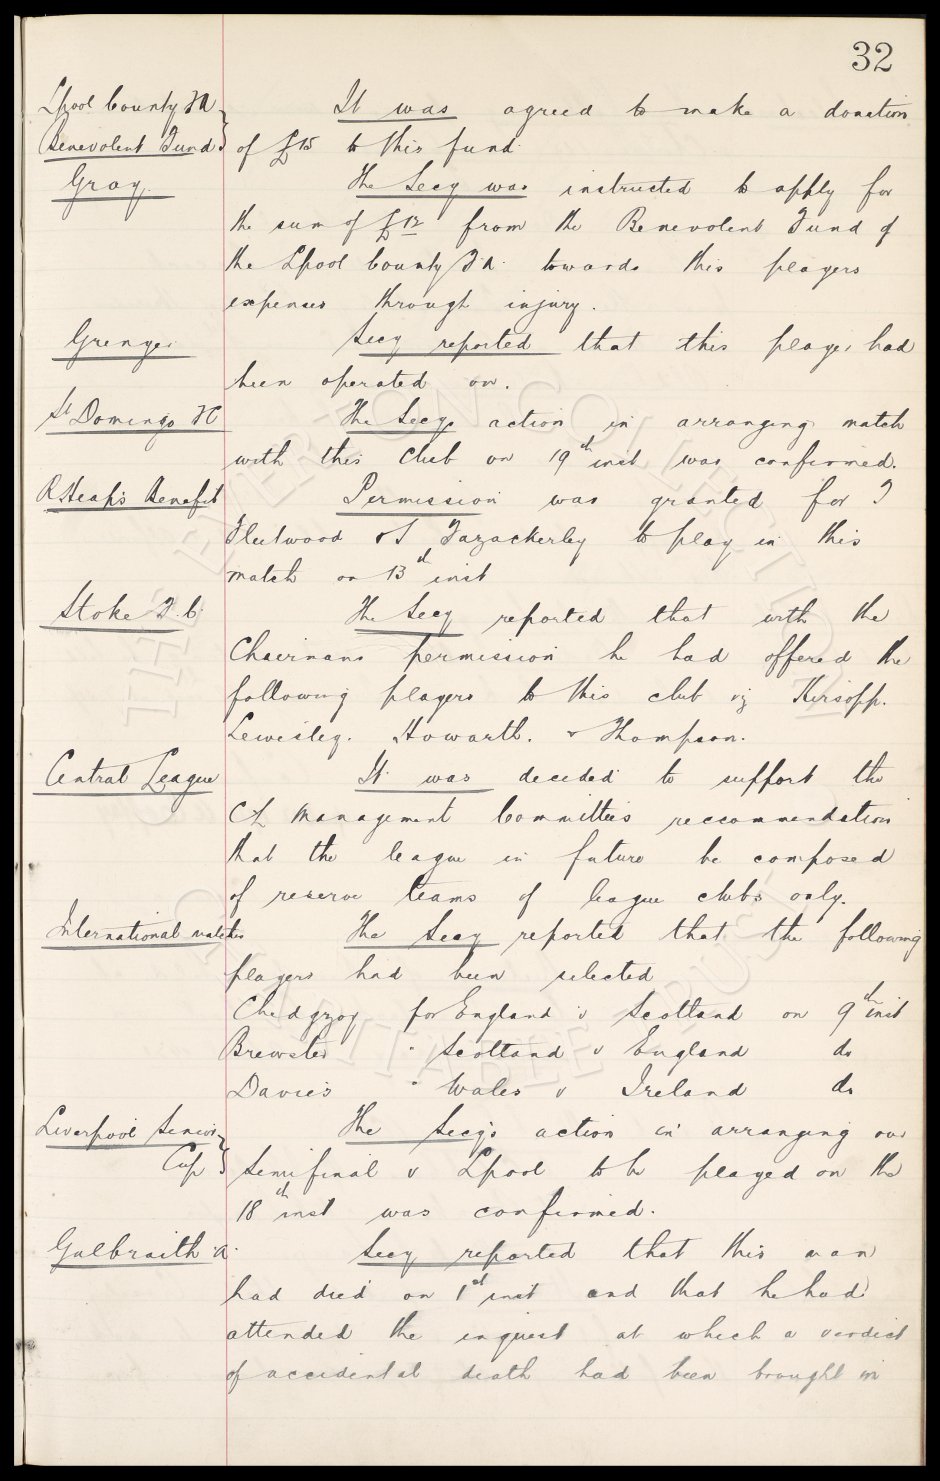 32
Lpool County FA
Benevolent Fund
It was agreed to make a donation
of £15 to this fund.
Gray.
The Secy was instructed to apply for
the sum of £12 from the Benevolent Fund of
the Lpool County F.A. towards this players
expenses through injury.
Grenyer
Secy reported that this player had
been operated on.
St Domingo FC
The Secys action in arranging match
with this Club on 19th inst was confirmed.
R Heap's Benefit
Permission was granted for T
Fleetwood & S Fazackerley to play in this
match on 13th inst
Stoke F.C.
The Secy reported that with the
Chairmans permission he had offered the
following players to this club viz Kirsopp.
Lewisley. Howarth. & Thompson.
Central League
It was decided to support the
CL Management Committee's reccommendation
that the league in future be composed
of reserve teams of league clubs only.
International matches
The Secy reported that the following
players had been selected
Chedgzoy for England v Scotland on 9th inst
Brewster " Scotland v England do
Davies " Wales v Ireland do
Liverpool Senior
Cup
The Secy's action in arranging our
Semi final v Lpool to be played on the
18th inst was confirmed.
Galbraith A.
Secy reported that this man
had died on 1st inst and that he had
attended the inquest at which a verdict
of accidental death had been brought in
THE EVERTON COLLECTION
CHARITABLE TRUST